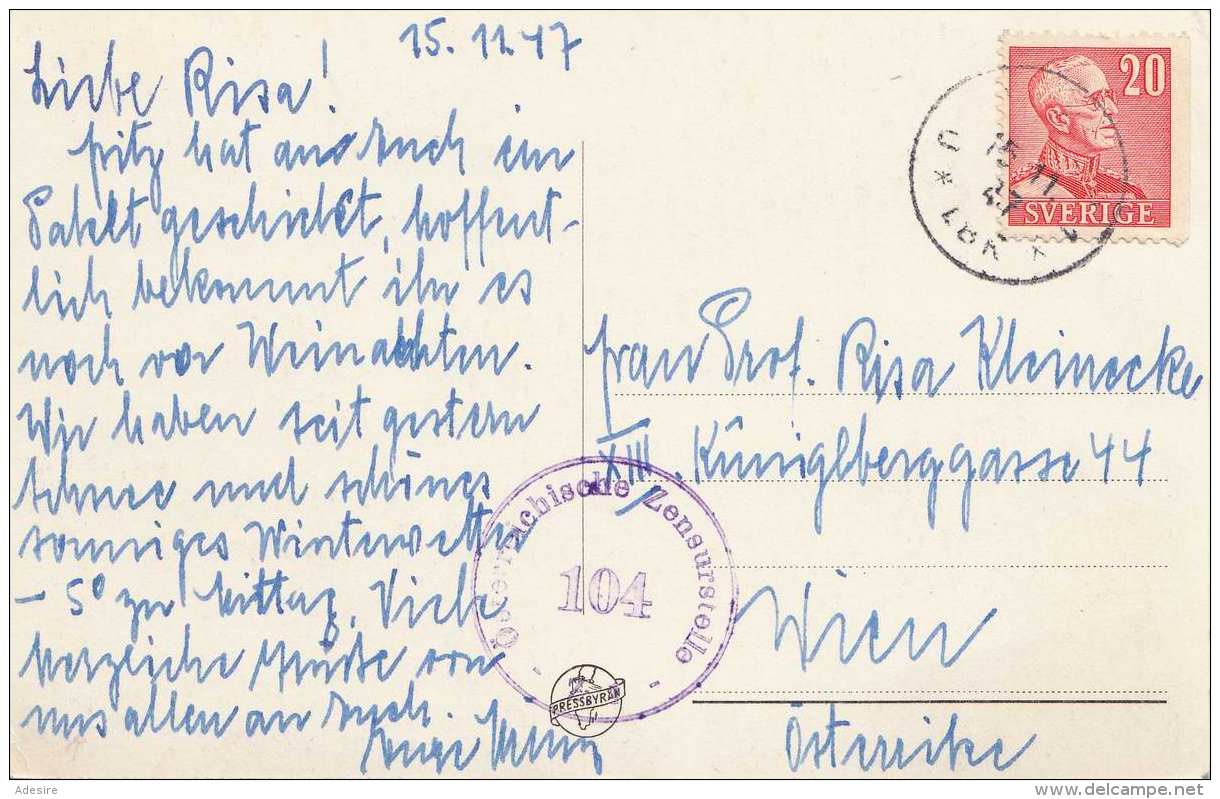 15.11.47
Liebe Risa!
Fritz hat an Euch ein
Paket geschickt, hoffent-
lich bekommt ihr es
noch vor Weinachten.
Wir haben seit gestern
Schnee und schönes
sonniges Winterwetter
- 5° zu Mittag. Viele
herzliche Grüße von
uns allen an Euch.
SVERIGE 20
15 11 47
Frau Prof. Risa Kleinecke
XIII, Küniglberggasse 44
Wien
Österreike
Österreichische Zensurstelle
104
PRESSBYRÅN
Adesire
www.delcampe.net